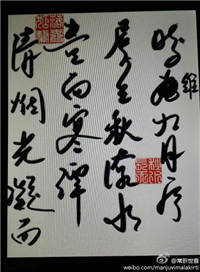 維
時九月序
属三秋潦水
尽而寒潭
清烟光凝而
weibo.com/manjuvimalakirti